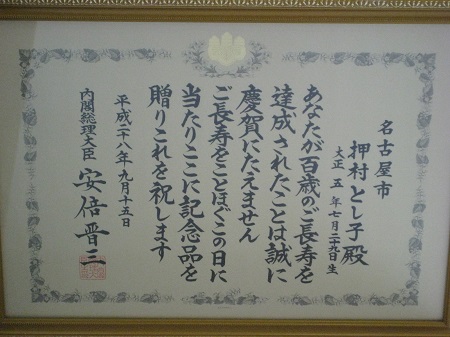 名古屋市
押村とし子殿
大正五年七月二十九日生
あなたが百歳のご長寿を
達成されたことは誠に
慶賀にたえません
ご長寿をことほぐこの日に
当たりここに記念品を
贈りこれを祝します
平成二十八年九月十五日
内閣総理大臣 安倍晋三